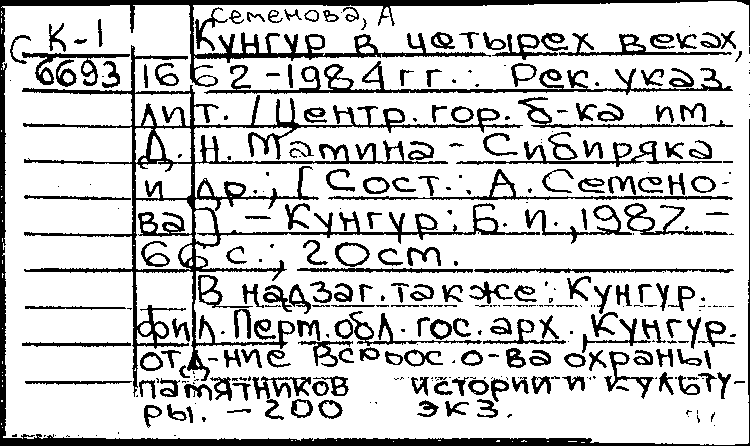 Семенова, А
К-1 Кунгур в четырех веках,
6693 1662-1984 гг.: Рек. указ.
лит. / Центр. гор. б-ка им.
Д. Н. Мамина - Сибиряка
и др.; [Сост.: А. Семено-
ва]. - Кунгур: Б. и., 1987. -
66 с.; 20 см.
В надзаг. также: Кунгур.
фил. Перм. обл. гос. арх., Кунгур.
отд-ние Всерос. о-ва охраны
памятников истории и культу-
ры. - 200 экз.